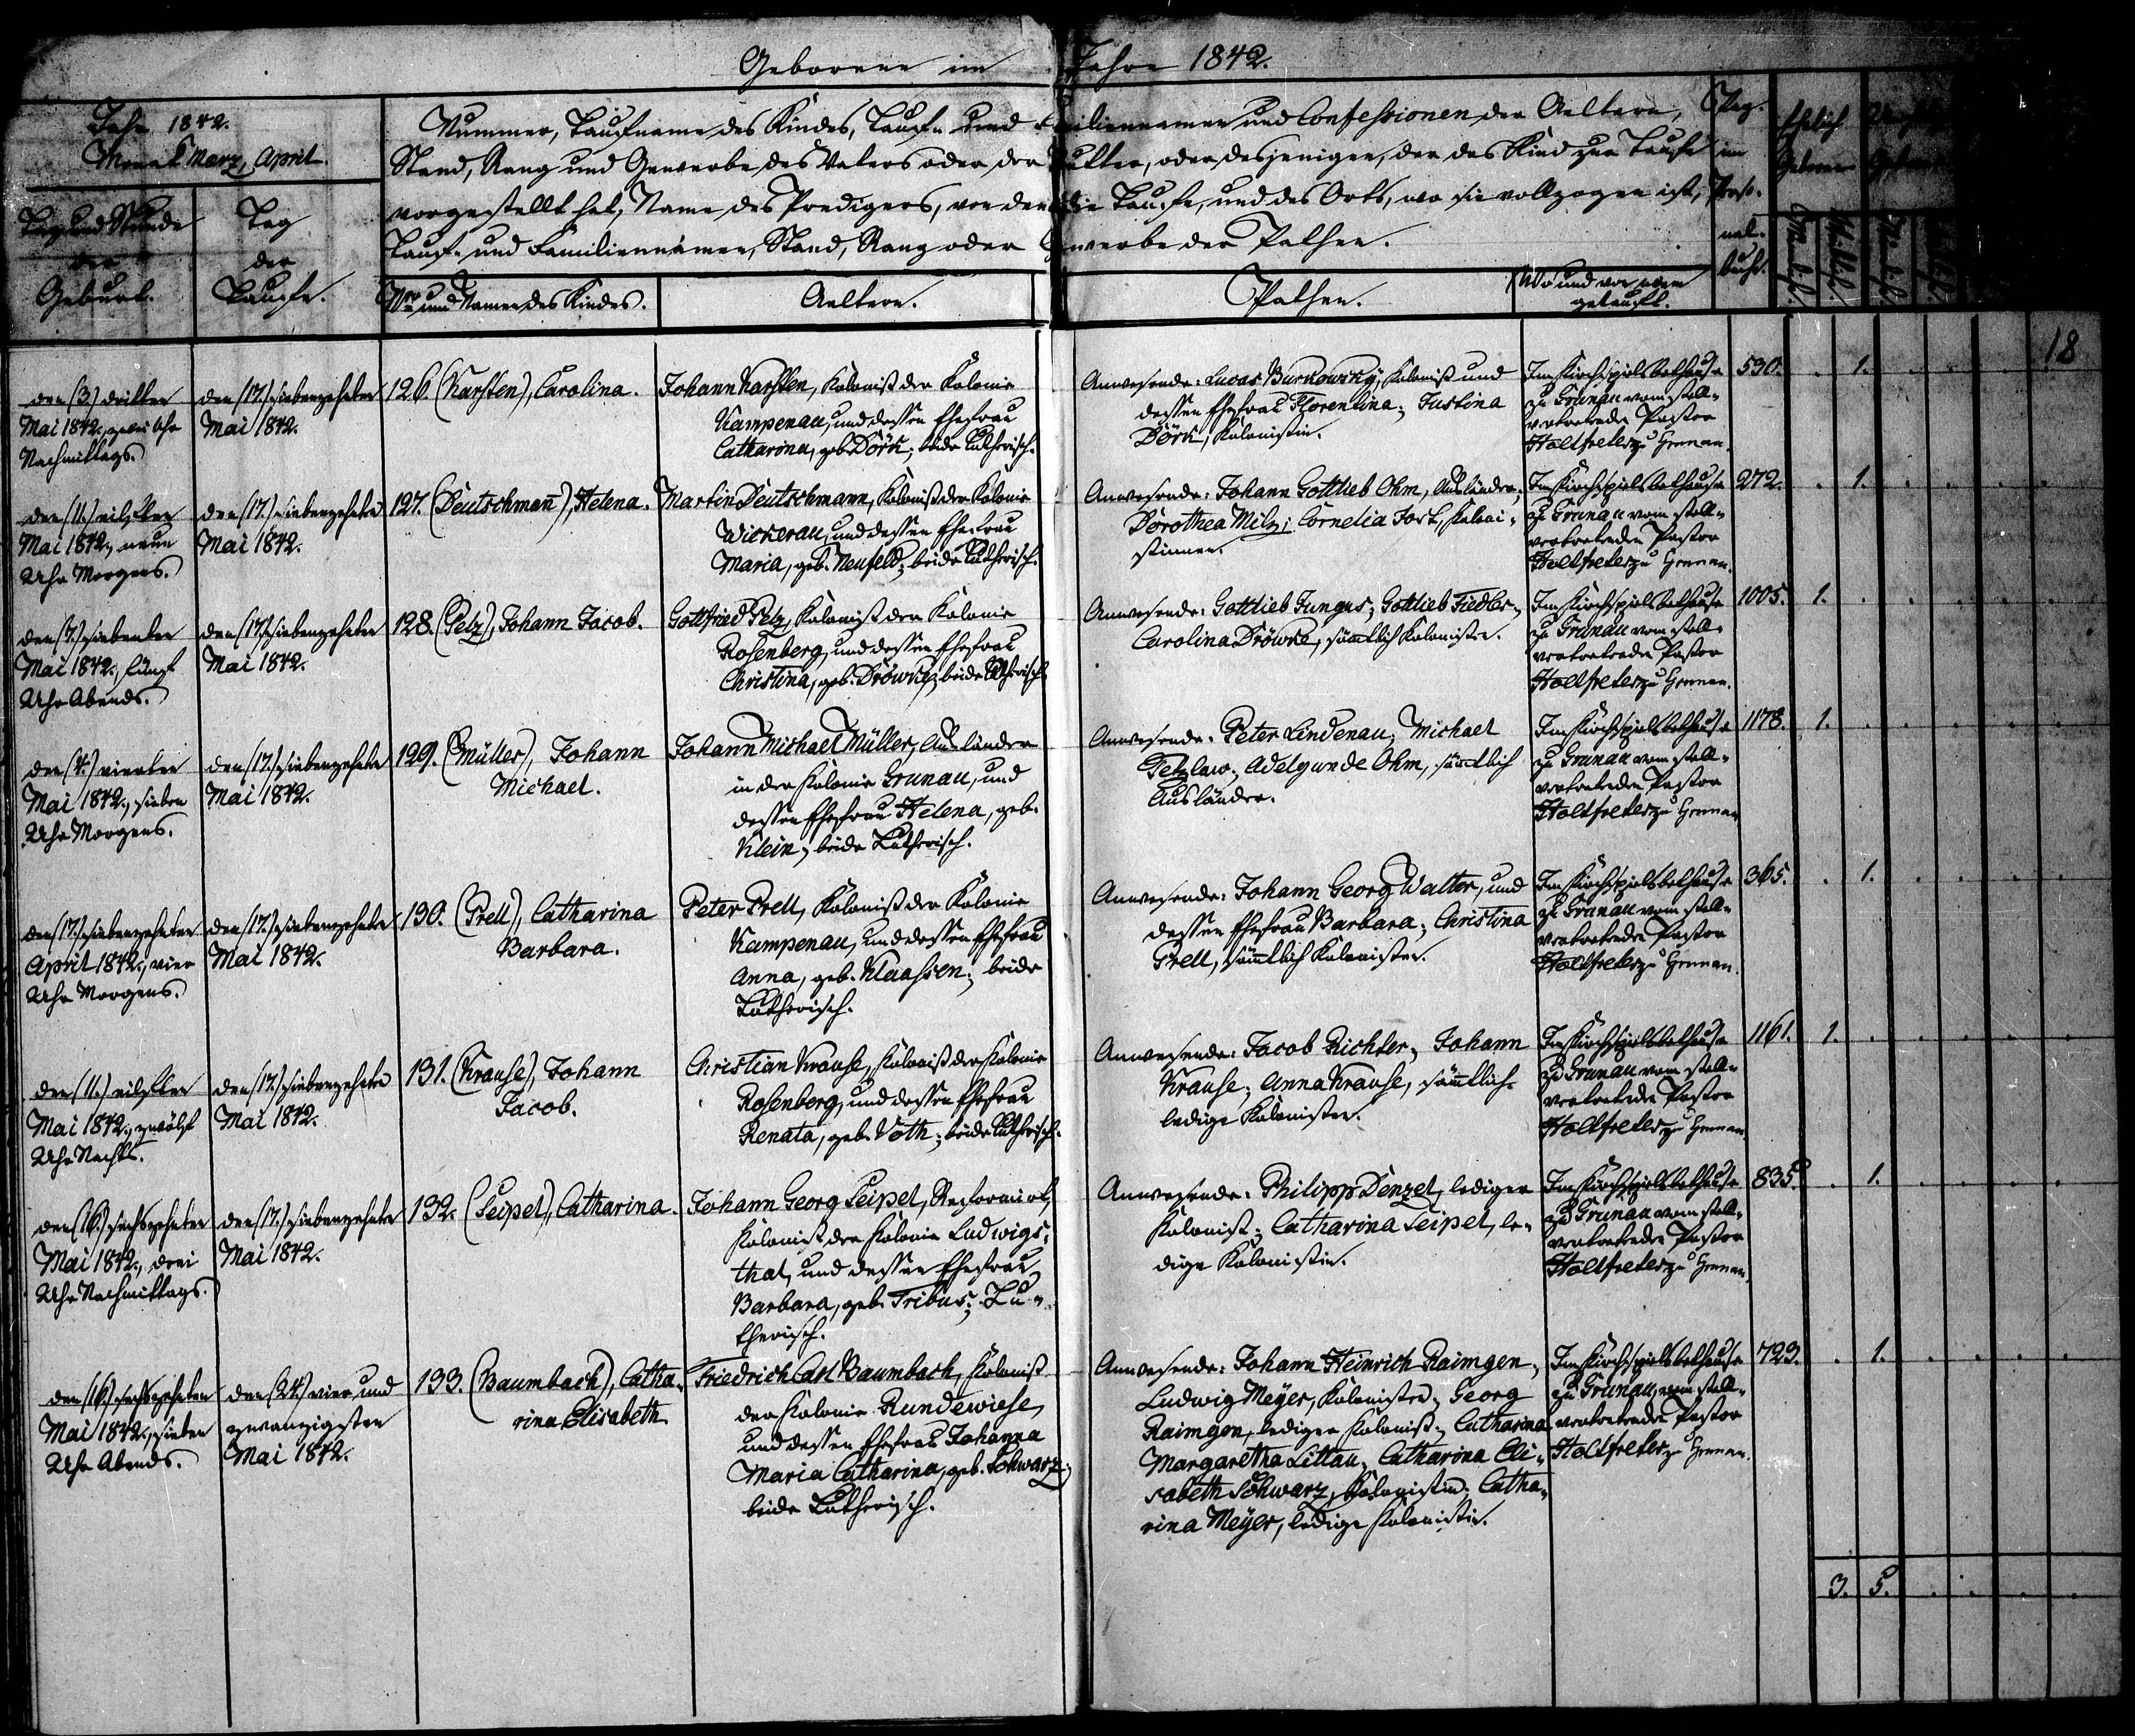 Geborene im Jahre 1842.
18
Jahr 1842.
Monat März, April.
Tag und Stunde
der
Geburt.
Tag
der
Taufe.
Nummer, Taufname des Kindes, Tauf- und Familiennamen und Confessionen der Aeltern,
Stand, Rang und Gewerbe des Vaters oder der Mutter, oder desjenigen, der das Kind zur Taufe
vorgestellt hat, Name des Predigers, von dem die Taufe, und des Orts, wo sie vollzogen ist,
Tauf- und Familiennamen, Stand, Rang oder Gewerbe der Pathen.
Nro und Namen des Kindes.
Aeltern.
Pathen.
Wo und von wem
getauft.
Pag.
im
Perso-
nal-
buch.
Ehelich
Geborene
Männlich.
Weiblich.
den (3.) dritten
Mai 1842, zwei Uhr
Nachmittags.
den (17.) siebenzehnten
Mai 1842.
126. (Karsten), Carolina.
Johann Karsten, Kolonist der Kolonie
Kampenau, und dessen Ehefrau
Catharina, geb. Dörk; beide Lutherisch.
Anwesende: Lucas Burkowsky, Kolonist und
dessen Ehefrau Florentina; Justina
Dörk, Kolonistin.
Im Kirchspielsbethause
zu Grunau vom stell-
vertretenden Pastor
Holtfreter zu Grunau.
530. 1.
den (11.) eilften
Mai 1842, neun
Uhr Morgens.
den (17.) siebenzehnten
Mai 1842.
127. (Deutschmañ), Helena.
Martin Deutschmann, Kolonist der Kolonie
Wickerau, und dessen Ehefrau
Maria, geb. Neufeld; beide Lutherisch.
Anwesende: Johann Gottlieb Ohm, Ausländer;
Dorothea Milz; Cornelia Jost, Koloni-
stinnen.
Im Kirchspielsbethause
zu Grunau vom stell-
vertretenden Pastor
Holtfreter zu Grunau.
272. 1.
den (7.) siebenten
Mai 1842, fünf
Uhr Abends.
den (17.) siebenzehnten
Mai 1842.
128. (Pelz), Johann Jacob.
Gottfried Pelz, Kolonist der Kolonie
Rosenberg, und dessen Ehefrau
Christina, geb. Dröwke; beide Lutherisch.
Anwesende: Gottlieb Jungus; Gottlieb Fiedler;
Carolina Dröwke, sämtlich Kolonisten.
Im Kirchspielsbethause
zu Grunau vom stell-
vertretenden Pastor
Holtfreter zu Grunau.
1005. 1.
den (4.) vierten
Mai 1842, sieben
Uhr Morgens.
den (17.) siebenzehnten
Mai 1842.
129. (Müller), Johann
Michael.
Johann Michael Müller, Ausländer
in der Kolonie Grunau, und
dessen Ehefrau Helena, geb.
Klein; beide Lutherisch.
Anwesende: Peter Lindenau; Michael
Tetzlaw; Adelgunde Ohm, sämtlich
Ausländer.
Im Kirchspielsbethause
zu Grunau vom stell-
vertretenden Pastor
Holtfreter zu Grunau.
1178. 1.
den (17.) siebenzehnten
April 1842, vier
Uhr Morgens.
den (17.) siebenzehnten
Mai 1842.
130. (Prell), Catharina
Barbara.
Peter Prell, Kolonist der Kolonie
Kampenau, und dessen Ehefrau
Anna, geb. Klaassen; beide
Lutherisch.
Anwesende: Johann Georg Walter, und
dessen Ehefrau Barbara; Christina
Prell, sämtlich Kolonisten.
Im Kirchspielsbethause
zu Grunau vom stell-
vertretenden Pastor
Holtfreter zu Grunau.
365. 1.
den (11.) eilften
Mai 1842, zwölf
Uhr Nachts.
den (17.) siebenzehnten
Mai 1842.
131. (Krause), Johann
Jacob.
Christian Krause, Kolonist der Kolonie
Rosenberg, und dessen Ehefrau
Renata, geb. Voth; beide Lutherisch.
Anwesende: Jacob Richter; Johann
Krause; Anna Krause, sämtlich
ledige Kolonisten.
Im Kirchspielsbethause
zu Grunau vom stell-
vertretenden Pastor
Holtfreter zu Grunau.
1161. 1.
den (16.) sechszehnten
Mai 1842, drei
Uhr Nachmittags.
den (17.) siebenzehnten
Mai 1842.
132. (Seipel), Catharina.
Johann Georg Seipel, Reformirt,
Kolonist der Kolonie Ludwigs-
thal, und dessen Ehefrau
Barbara, geb. Tribus; Lu-
therisch.
Anwesende: Philipp Denzel, lediger
Kolonist; Catharina Seipel, le-
dige Kolonistin.
Im Kirchspielsbethause
zu Grunau vom stell-
vertretenden Pastor
Holtfreter zu Grunau.
835. 1.
den (16.) sechszehnten
Mai 1842, sieben
Uhr Abends.
den (24.) vier und
zwanzigsten
Mai 1842.
133. (Baumbach), Catha-
rina Elisabeth.
Friedrich Carl Baumbach, Kolonist
der Kolonie Rundewiese,
und dessen Ehefrau Johanna
Maria Catharina, geb. Schwarz;
beide Lutherisch.
Anwesende: Johann Heinrich Raimgen;
Ludwig Meyer, Kolonisten; Georg
Raimgen, lediger Kolonist; Catharina
Margaretha Littau; Catharina Eli-
sabeth Schwarz, Kolonistin; Catha-
rina Meyer, ledige Kolonistin.
Im Kirchspielsbethause
zu Grunau, vom stell-
vertretenden Pastor
Holtfreter zu Grunau.
723. 1.
3. 5.